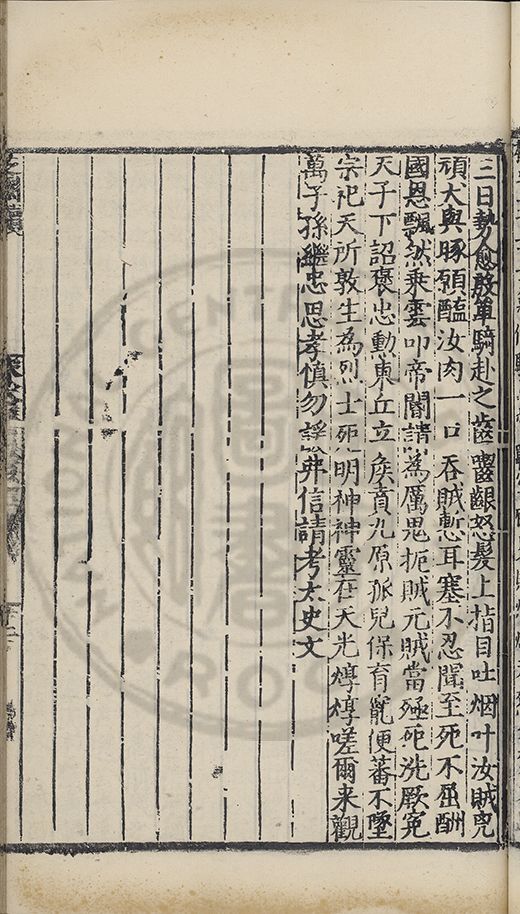 三日勢愈殷單騎赴之齒嚼齦怒髮上指目吐烟叱汝賊兇
頑犬與豚預醢汝肉一口吞賊慙耳塞不忍聞至死不屈酬
國恩飄然乘雲叩帝閽請為厲鬼扼賊元賊當殛死洗厥冤
天子下詔褒忠勳東丘立侯賁九原孤兒保育寵便蕃不墜
宗祀天所敦生為烈士死明神神靈在天光焞焞嗟爾来觀
萬子孫繼忠思孝慎勿諼弗信請考太史文